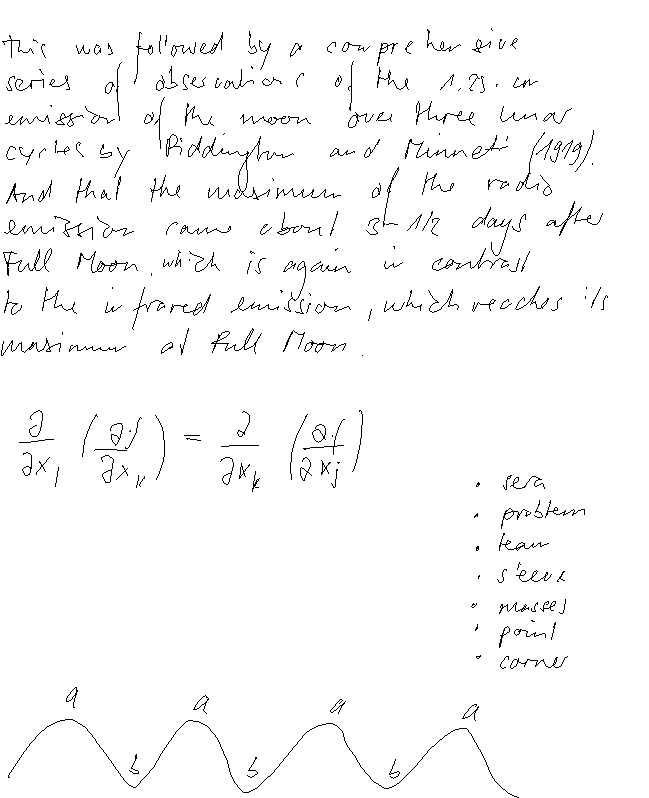 This was followed by a comprehensive
series of observations of the 1.25-cm
emission of the moon over three lunar
cycles by Piddington and Minnett (1919).
And that the maximum of the radio
emission came about 3-1/2 days after
Full Moon, which is again in contrast
to the infrared emission, which reaches its
maximum at Full Moon.
∂/∂x_j (∂f/∂x_k) = ∂/∂x_k (∂f/∂x_j)
• sera
• problem
• team
•
• masses
• point
• corner
a a a a
b b b